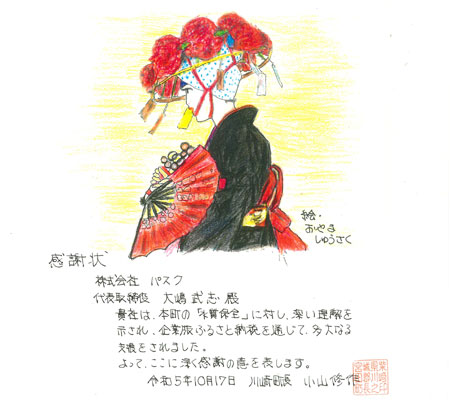 絵・
おやま
しゅうさく
感謝状
株式会社 パスク
代表取締役 大嶋武志殿
貴社は、本町の「水質保全」に対し、深い理解を
示され、企業版ふるさと納税を通じて、多大なる
支援をされました。
よって、ここに深く感謝の意を表します。
令和5年10月17日 川崎町長 小山修作